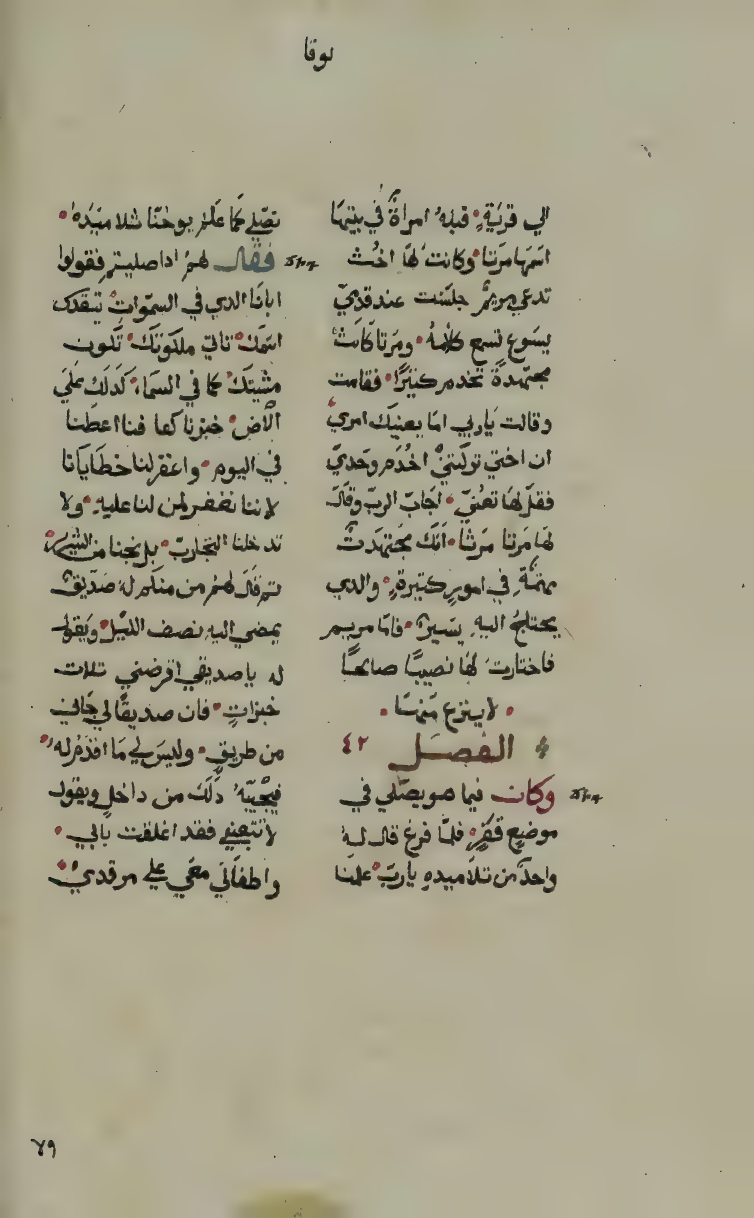 لوقا
الي قريةٍ قبلهُ امراةٌ في بيتها
اسمها مرتا وكانت لها اخت
تدعي مريم جلست عند قدمي
يسوع تسمع كلامهُ ومرتا كانت
مجتهدة تخدم كثيرًا فقامت
وقالت يا ربي اما يعنيك امري
ان اختي تركتني اخدم وحدي
فقل لها تعنّي اجاب الرب وقال
لها مرتا مرتا انك مجتهدت
مهتمة في امورٍ كتيرةٍ والدي
يحتاج اليهِ يسيرًا فاما مريم
فاختارت لها نصيبًا صالحًا
لا ينزع منها
الفصل ٤٢
وكان فيما هو يصلي في
موضع قفرٍ فلما فرغ قال لهُ
واحد من تلاميده يا رب علمنا
نصلي كما علم يوحنا تلاميدهُ
فقال لهم ادا صليتم فقولوا
ابانا الدي في السموات تيقدك
اسمك تاتي ملكوتك تكون
مشيتك كما في السماء كدلك علي
الارض خبزنا كفافنا اعطنا
في اليوم واغفر لنا خطايانا
لاننا نغفر لمن لنا عليهِ ولا
تدخلنا التجارب بل نجنا من الشرير
تم قال لهم من منكم له صديق
يمضي اليه نصف الليل ويقول
له يا صديقي اقرضني تلات
خبزاتٍ فان صديقًا لي جاني
من طريقٍ وليس لي ما اقدم له
فيجيبهُ دلك من داخل ويقول
لا تتعبني فقد اغلقت بابي
واطفالي معي علي مرقدي
٧٩